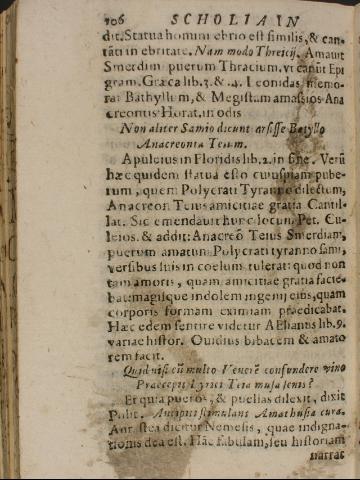 106 SCHOLIA IN
dit. Statua homini ebrio est similis, & can-
tāti in ebritate. Nam modo Threicij. Amauit
Smerdim puerum Thracium, vt canūt Epi
gram. Græca lib. 3. & .4. Leonidas memo-
rat Bathyllum, & Megistam amassios Ana
creontis Horat. in odis
Non aliter Samio dicunt arsisse Batyllo
Anacreonta Teium.
Apuleius in Floridis lib. 2. in fine. Verū
hæc quidem statua esto cuiuspiam pube-
rum, quem Polycrati Tyranno dilectum,
Anacreon Teius amicitiæ gratia Cantil-
lat. Sic emendauit hunc locum Pet.
& addit: Anacreō Teius Smerdiam,
puerum amatum Polycrati tyranno sami,
versibus suis in coelum tulerat: quod non
tam amoris, quam amicitiæ gratia facie-
bat: magisque indolem ingenij eius, quam
corporis formam eximiam prædicabat.
Hæc edem sentire videtur AElianus lib. 9.
variæ histor. Ouidius bibacem & amato
rem facit.
Quid nisi cū multo Venerē confundere vino
Præcepit Lyrici Teia musa senis?
Et quia pueros, & puellas dilexit, dixit
Polit. Ancipiti stimulans Amathusia cura.
dicitur Nemesis, quæ indigna-
tionis dea est. Hāc fabulam, seu historiam
narrat